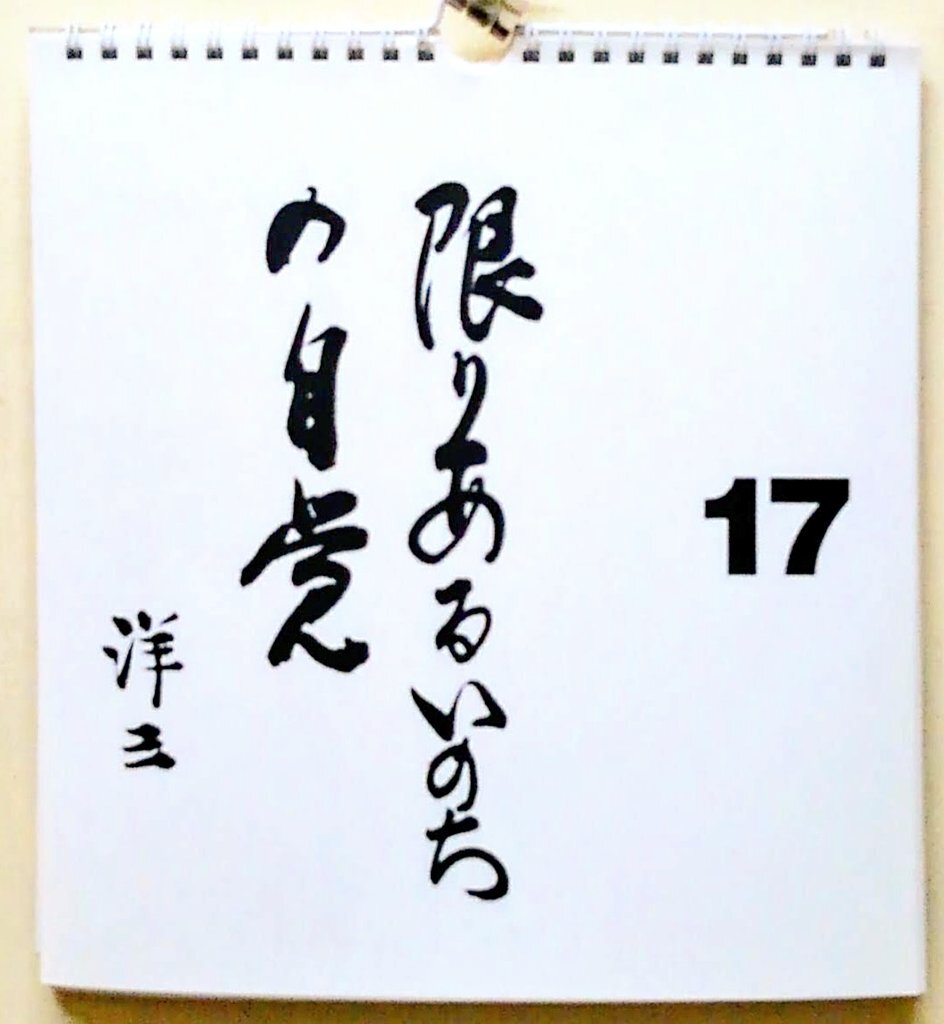 17
限りあるいのち
の自覚
洋三